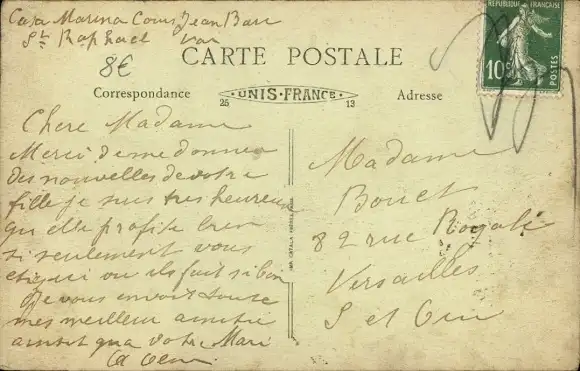 Casa Marina Cours Jean Bart
St Raphael Var
8€
CARTE POSTALE
REPUBLIQUE FRANÇAISE
10c
POSTES
Correspondance
25 UNIS-FRANCE 13
Adresse
Chere Madame
Merci de me donner
des nouvelles de votre
fille je suis tres heureuse
qu elle profite bien
si seulement vous
etiez ici ou il fait si bon
Je vous envoit toute
mes meilleur amitié
ainsit qua votre Mari
Madame
Bouet
82 rue Royale
Versailles
S et Oise